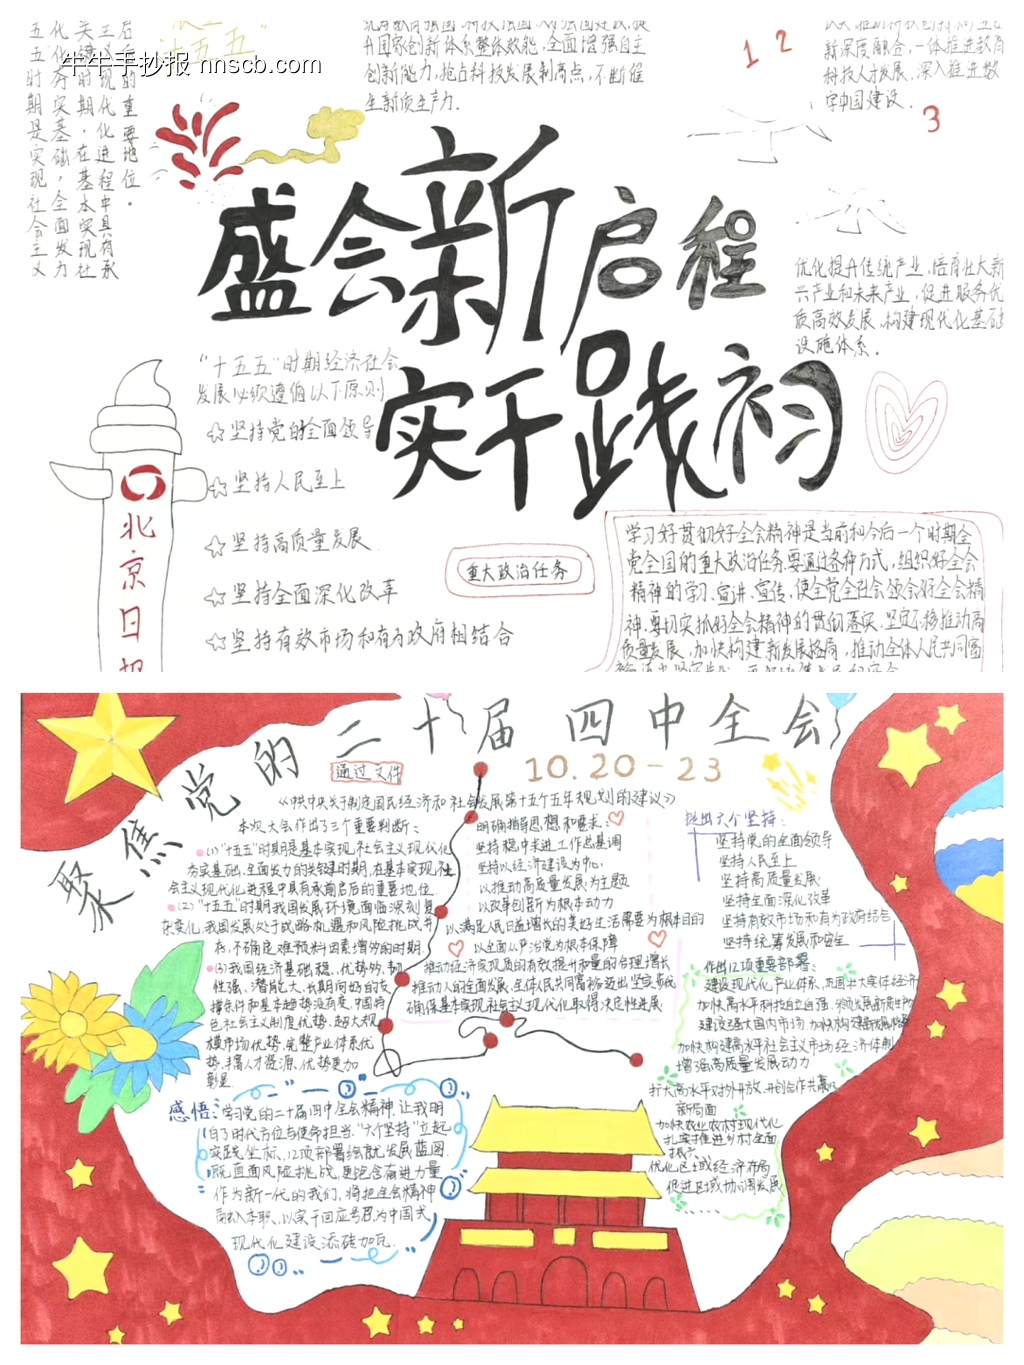 牛牛手抄报 nnscb.com
五五时期是实现社会主义
化夯实基础,全面发力
关键时期,在基本实现社
主义现代化进程中具有承
后的重要地位。
升国家创新体系整体效能,全面增强自主
创新能力,抢占科技发展制高点,不断催
生新质生产力.
1 2
新深度融合,一体推进教育
科技人才发展.深入推进数
字中国建设.
3
盛会新启程
优化提升传统产业,培育壮大新
兴产业和未来产业,促进服务优
质高效发展,构建现代化基础
设施体系.
实干践初
"十五五"时期经济社会
发展必须遵循以下原则
坚持党的全面领导
坚持人民至上
坚持高质量发展
坚持全面深化改革
坚持有效市场和有为政府相结合
北京日报
重大政治任务
学习好贯彻好全会精神是当前和今后一个时期全
党全国的重大政治任务.要通过各种方式,组织好全会
精神的学习、宣讲、宣传,使全党全社会领会好全会精
神.要切实抓好全会精神的贯彻落实,坚定不移推动高
质量发展,加快构建新发展格局,推动全体人民共同富
聚焦党的二十届四中全会
通过文件
10.20-23
《中共中央关于制定国民经济和社会发展第十五个五年规划的建议》
本次大会作出了三个重要判断:
(1)"十五五"时期是基本实现社会主义现代化
夯实基础、全面发力的关键时期,在基本实现社
会主义现代化进程中具有承前启后的重要地位.
(2)"十五五"时期我国发展环境面临深刻复
杂变化,我国发展处于战略机遇和风险挑战并
存,不确定难预料因素增多的时期
(3)我国经济基础稳、优势多、韧
性强、潜能大,长期向好的支
撑条件和基本趋势没有变,中国特
色社会主义制度优势、超大规
模市场优势、完整产业体系优
势、丰富人才资源、优势更加
彰显
明确指导思想和要求:
坚持稳中求进工作总基调
坚持以经济建设为中心
以推动高质量发展为主题
以改革创新为根本动力
以满足人民日益增长的美好生活需要为根本目的
以全面从严治党为根本保障
推动经济实现质的有效提升和量的合理增长
推动人的全面发展、全体人民共同富裕迈出坚实步伐
确保基本实现社会主义现代化取得决定性进展
提出六个坚持:
坚持党的全面领导
坚持人民至上
坚持高质量发展
坚持全面深化改革
坚持有效市场和有为政府结合
坚持统筹发展和安全
作出12项重要部署:
建设现代化产业体系,巩固壮大实体经济
加快高水平科技自立自强,
建设强大国内市场 加快构建新发展格局
加快构建高水平社会主义市场经济体制
增强高质量发展动力
扩大高水平对外开放,开创合作共赢
新局面
加快农业农村现代化
扎实推进乡村全面
振兴
优化区域经济布局
促进区域协调发展
......
感悟:学习党的二十届四中全会精神,让我明
白了时代方位与使命担当."六个坚持"立起
实践坐标、12项部署绘就发展蓝图.
既直面风险挑战,更饱含奋进力量
作为新一代的我们,将把全会精神
融入本职,以实干回应号召,为中国式
现代化建设添砖加瓦.